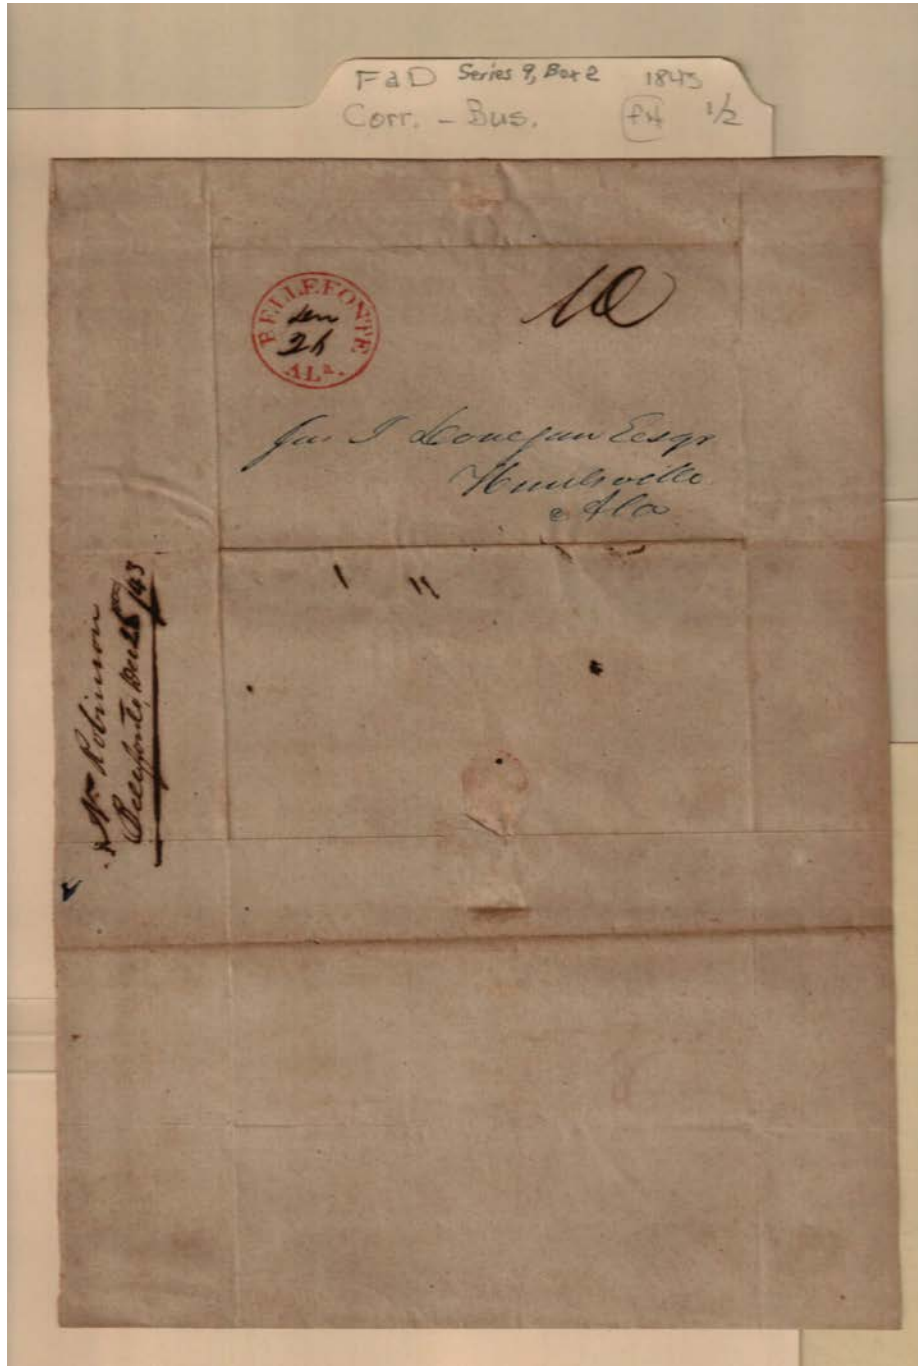 FaD Series 9, Box 2 1843
Corr. - Bus. 1/2
BELLEFONTE
26
ALa.
10
Jas J Donegan Esqr
Huntsville
Ala
Wm Robinson
Bellefonte, Dec 25 /43